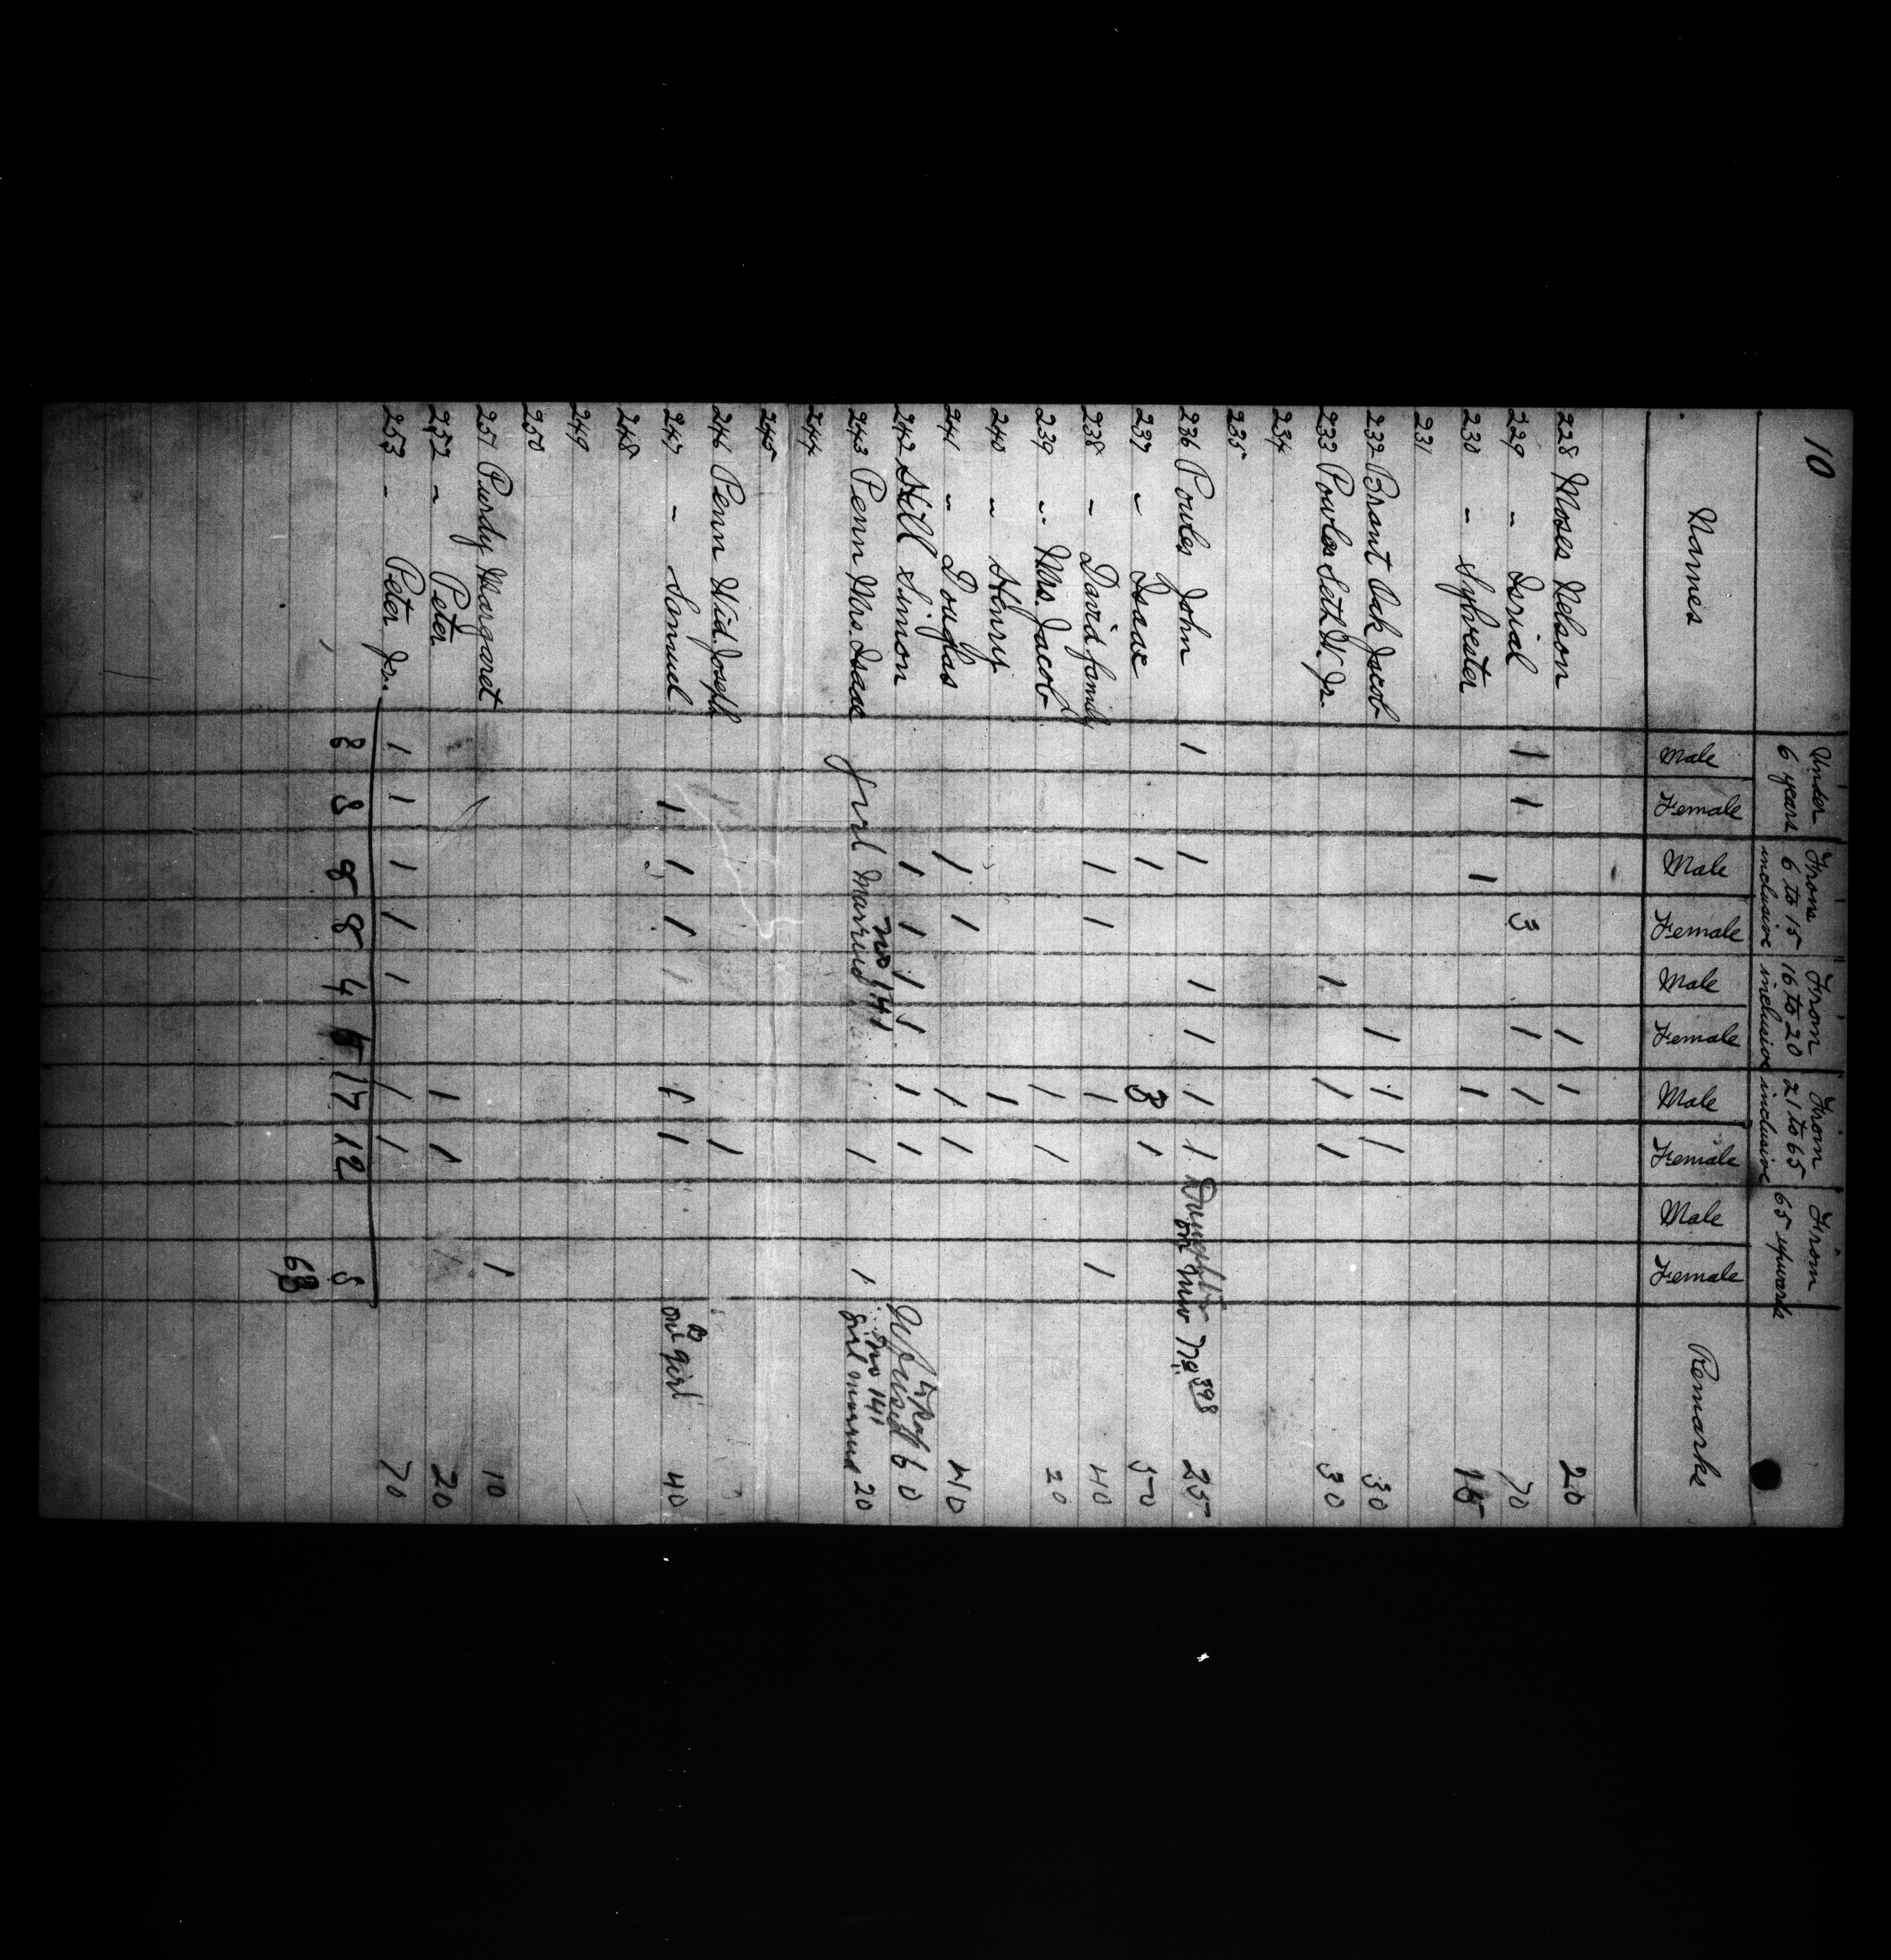 10
Names Under 6 years From 6 to 15 inclusive From 16 to 20 inclusive From 21 to 65 inclusive From 65 upwards Remarks
Male Female Male Female Male Female Male Female Male Female
228 Moses Nelson 1 1 20
229 " Isrial 1 1 3 1 1 70
230 " Sylvester 1 1 15
231
232 Brant Oak Jacob 1 1 1 30
233 Powles Seth W. Jr. 1 1 1 30
234
235
236 Powles John 1 1 1 1 1 1 Daughter on new No 398 25
237 " Isaac 1 3 1 50
238 " David family 1 1 1 1 40
239 " Mrs. Jacob 1 1 20
240 " Henry 1
241 " Douglas 1 1 1 1 40
242 Hill Simon 1 1 1 1 1 1 Refused 60
243 Penn Mrs. Isaac girl married no 141 1 1 no 141 girl married 20
244
245
246 Penn Wid. Joseph 1
247 " Samuel 1 1 1 1 1 one girl 40
248
249
250
251 Purdy Margaret 1 10
252 " Peter 1 1 20
253 " Peter Jr. 1 1 1 1 1 1 1 70
8 8 4 17 12